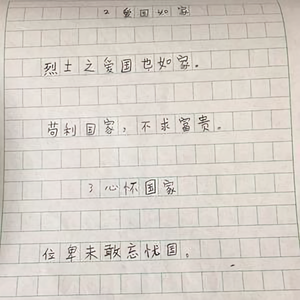 2 爱国如家
烈士之爱国也如家。
苟利国家，不求富贵。
3 心怀国家
位卑未敢忘忧国。